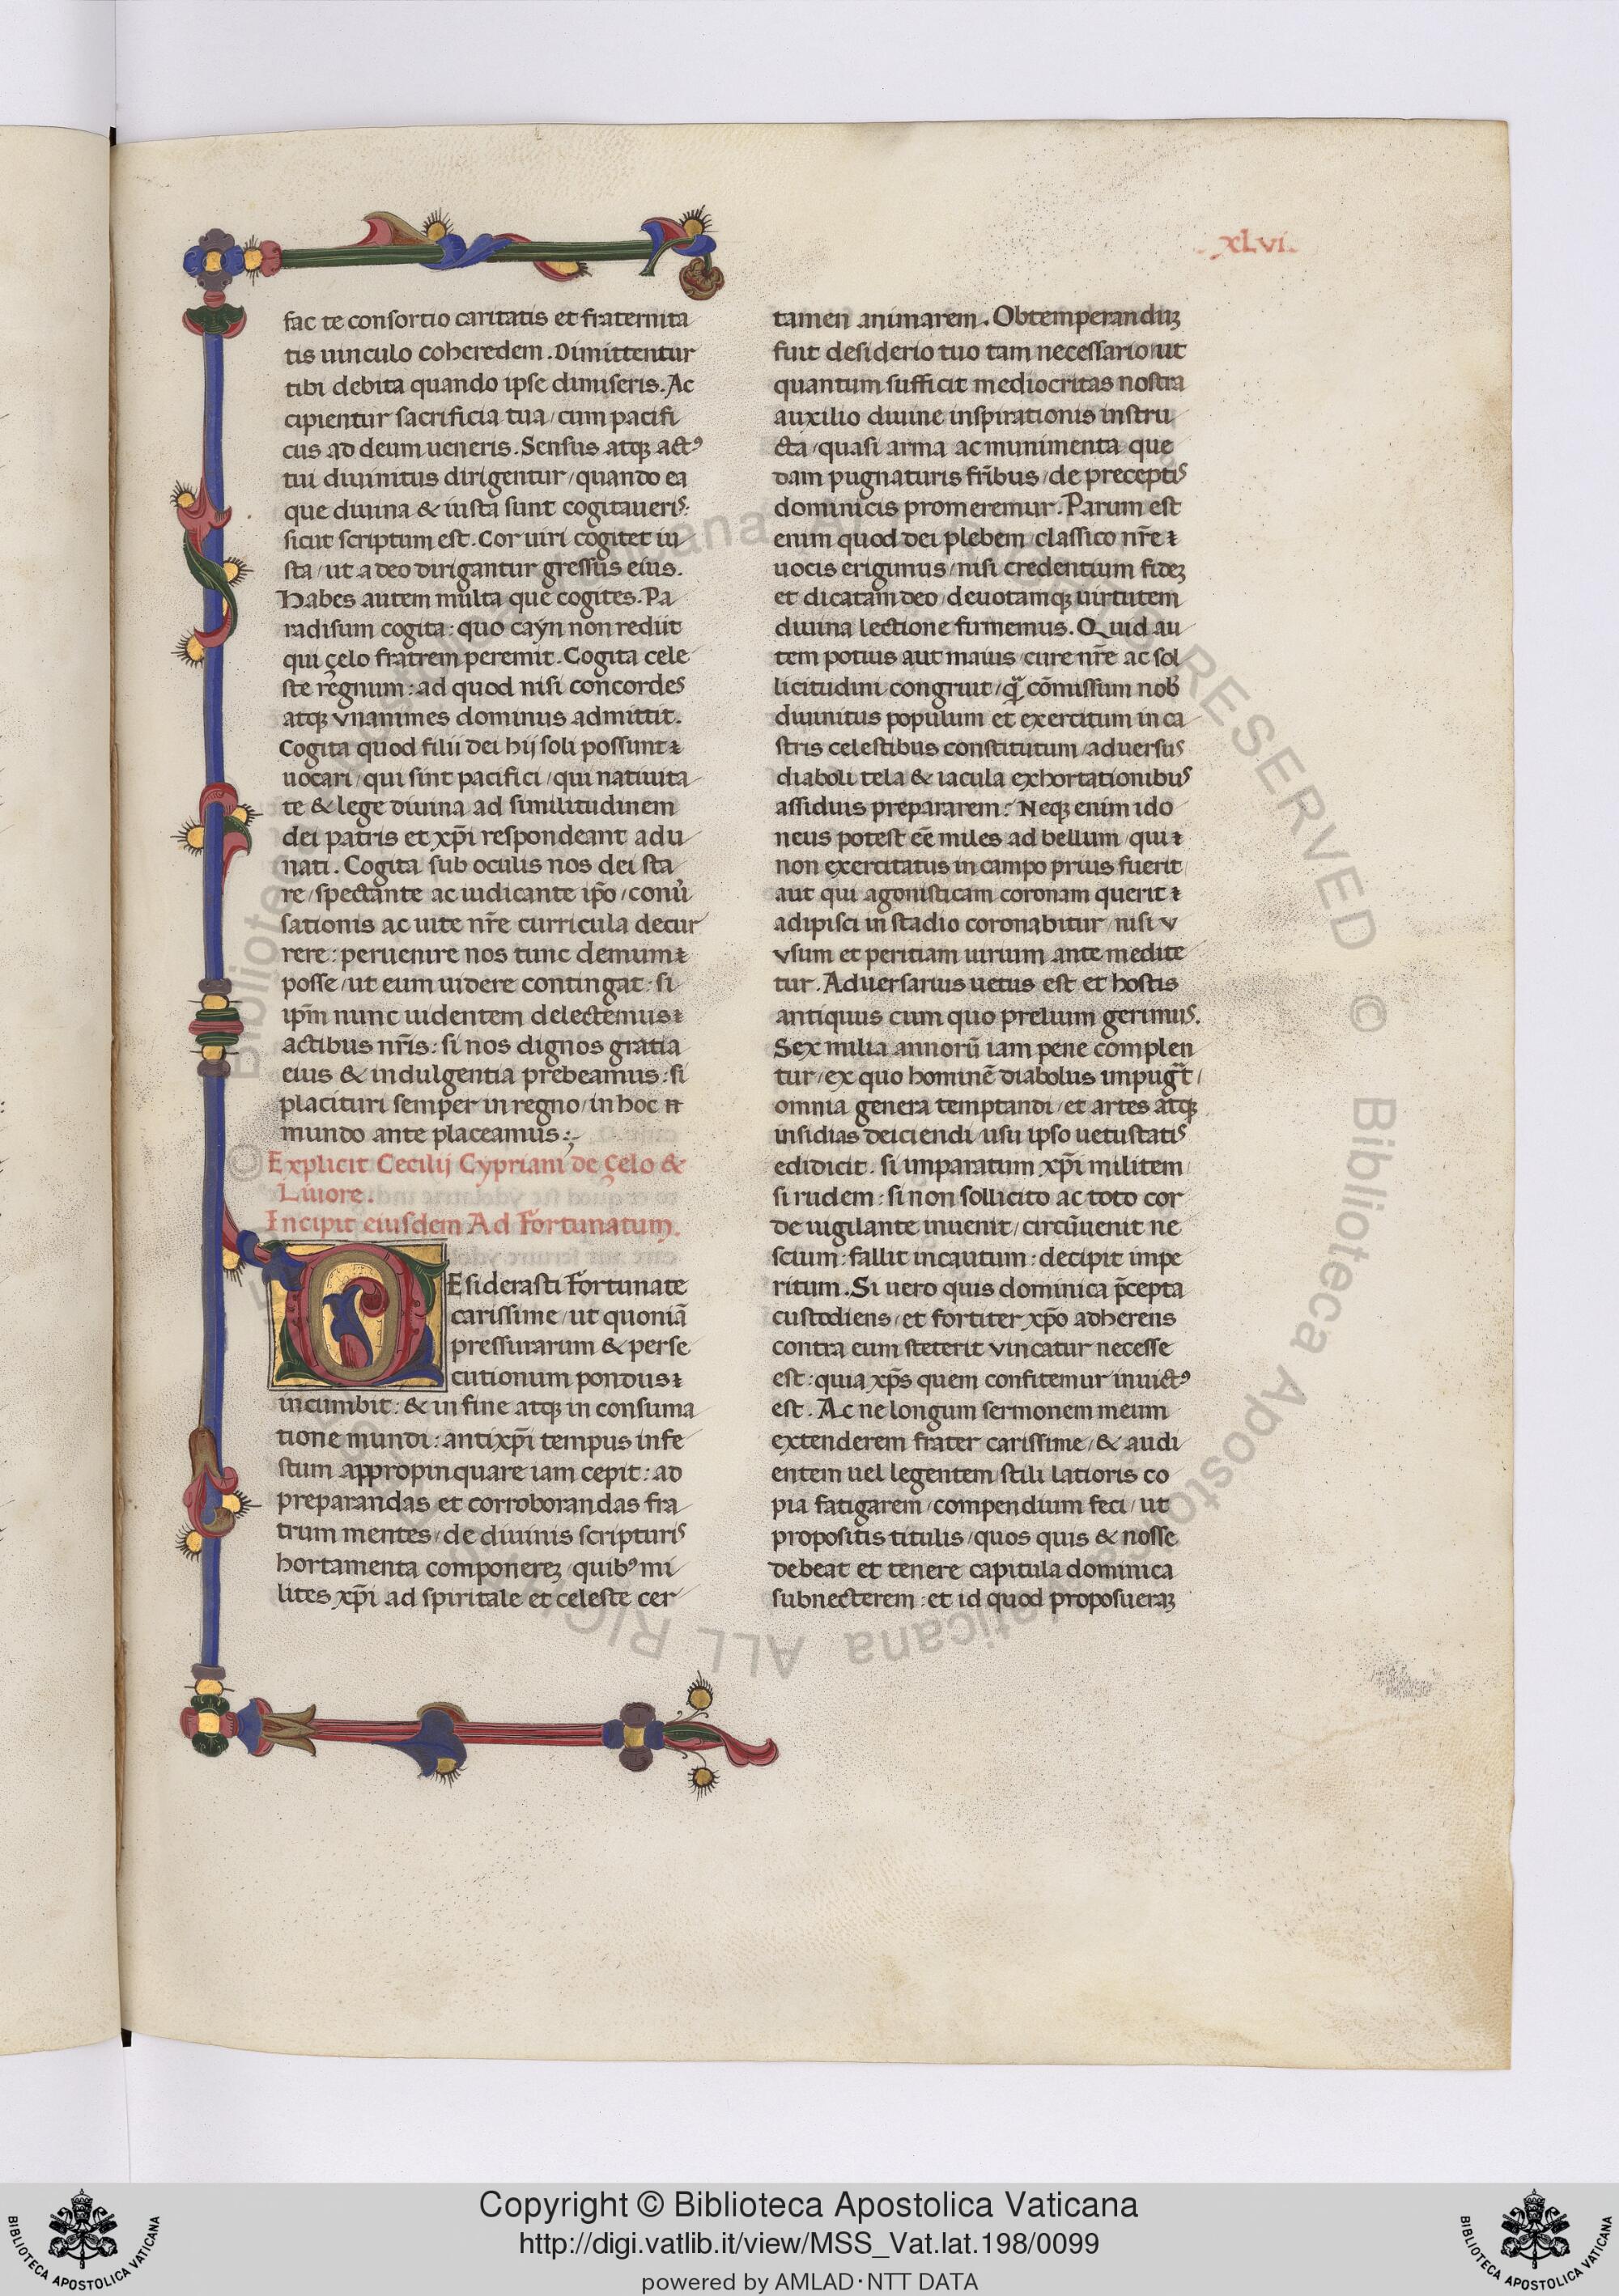 xLvi.
fac te consortio caritatis et fraternita
tis uinculo coheredem. Dimittentur
tibi debita quando ipse dimiseris. Ac
cipientur sacrificia tua / cum pacifi
cus ad deum ueneris. Sensus atqꝫ actꝰ
tui diuinitus dirigentur / quando ea
que diuina & iusta sunt cogitaueris:
sicut scriptum est. Cor uiri cogitet iu
sta / ut a deo dirigantur gressus eius.
Habes autem multa que cogites. Pa
radisum cogita: quo cayn non rediit
qui çelo fratrem peremit. Cogita cele
ste regnum: ad quod nisi concordes
atqꝫ vnanimes dominus admittit.
Cogita quod filii dei hij soli possunt
uocari / qui sint pacifici / qui natiuita
te & lege diuina ad similitudinem
dei patris et xp̄i respondeant adu
nati. Cogita sub oculis nos dei sta
re / spectante ac iudicante ip̄o / conu̓
sationis ac uite nr̄e curricula decur
rere: peruenire nos tunc demum
posse / ut eum uidere contingat: si
ip̄m nunc uidentem delectemus
actibus nr̄is: si nos dignos gratia
eius & indulgentia prebeamus: si
placituri semper in regno / in hoc
mundo ante placeamus:
Explicit Cecilij Cypriani de çelo &
Liuore.
Incipit eiusdem Ad Fortunatum.
DEsiderasti Fortunate
carissime / ut quoniā
pressurarum & perse
cutionum pondus
incumbit: & in fine atqꝫ in consuma
tione mundi: antixp̄i tempus infe
stum appropinquare iam cepit: ad
preparandas et corroborandas fra
trum mentes / de diuinis scripturis
hortamenta componereꝫ / quibꝰ mi
lites xp̄i ad spiritale et celeste cer
tamen animarem. Obtemperanduꝫ
fuit desiderio tuo tam necessario ut
quantum sufficit mediocritas nostra
auxilio diuine inspirationis instru
cta / quasi arma ac munimenta que
dam pugnaturis fr̄ibus / de preceptis
dominicis promeremur. Parum est
enim quod dei plebem classico nr̄e
uocis erigimus / nisi credentium fideꝫ
et dicatam deo / deuotamqꝫ uirtutem
diuina lectione firmemus. Quid au
tem potius aut maius cure nr̄e ac sol
licitudini congruit / qᷓ cōmissum nob̄
diuinitus populum et exercitum in ca
stris celestibus constitutum / aduersus
diaboli tela & iacula exhortationibus
assiduis prepararem: Neqꝫ enim ido
neus potest eē miles ad bellum / qui
non exercitatus in campo prius fuerit
aut qui agonisticam coronam querit
adipisci in stadio coronabitur / nisi v
vsum et peritiam uirium ante medite
tur. Aduersarius uetus est et hostis
antiquus cum quo prelium gerimus.
Sex milia annorū iam pene complen
tur / ex quo hominē diabolus impugᷓt /
omnia genera temptandi / et artes atqꝫ
insidias deiciendi / usu ipso uetustatis
edidicit. si imparatum xp̄i militem
si rudem: si non sollicito ac toto cor
de uigilante inuenit / circūuenit ne
scium: fallit incautum: decipit impe
ritum. Si uero quis dominica p̄cepta
custodiens / et fortiter xp̄o adherens
contra eum steterit vincatur necesse
est: quia xp̄s quem confitemur inuictꝰ
est. Ac ne longum sermonem meum
extenderem frater carissime / & audi
entem uel legentem stili latioris co
pia fatigarem / compendium feci / ut
propositis titulis / quos quis & nosse
debeat et tenere capitula dominica
subnecterem: et id quod proposueraꝫ
© Biblioteca Apostolica Vaticana ALL RIGHTS RESERVED © Biblioteca Apostolica Vaticana ALL RIGHTS
Copyright © Biblioteca Apostolica Vaticana
http://digi.vatlib.it/view/MSS_Vat.lat.198/0099
powered by AMLAD·NTT DATA
BIBLIOTECA APOSTOLICA VATICANA
BIBLIOTECA APOSTOLICA VATICANA